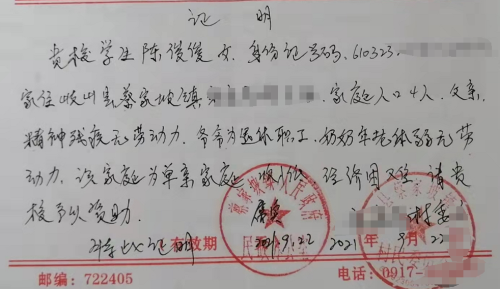 证 明
贵校学生陈俊俊 女. 身份证号码. 610323
家住岐山县蔡家坡镇 家庭人口4人. 父亲
精神残疾无劳动力. 爷爷为退休职工. 奶奶年老体弱无劳
动力. 该家庭为单亲家庭 经济困难 请贵
校予以资助.
特此证明 有效期 2021.9.22 2021年 9月22
邮编:722405 电话:0917-